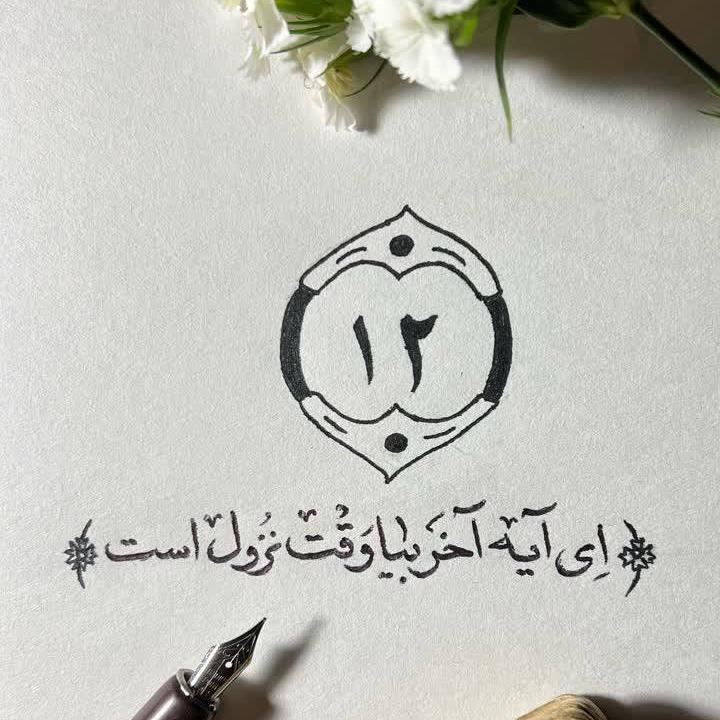 ۱۲
﴿اِی آیه آخَر بیا وَقْت نُزول است﴾